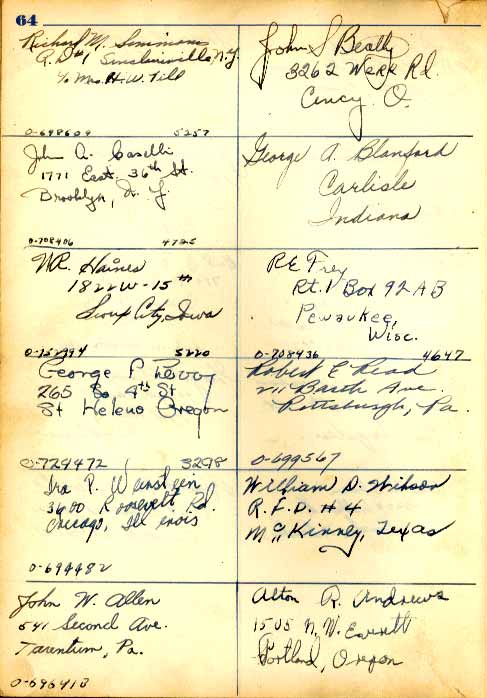 64
Richard M. Simmons
R.D #1 Sinclairville, N.Y.
c/o Mrs. H. W. Tild
O-698609 5257
John S Beatty
3262 Werk Rd.
Cincy O.
John A. Caselli
1771 East 36th St.
Brooklyn, N.Y.
O-708406 4725
George A. Blanford
Carlisle
Indiana
W.R. Haines
1822 W-15th
Sioux City, Iowa
O-752794 5220
R E Frey
Rt. 1 Box 92 AB
Pewaukee,
Wisc.
O-708436 4647
George P
265 So 4th St
St Helens Oregon
O-729472 3298
Robert E Read
211 Barth Ave.
Pittsburgh, Pa.
O-699567
Ira P. Weinstein
3600 Roosevelt Rd.
Chicago, Illinois
O-694482
William D. Wilson
R.F.D. #4
McKinney, Texas
John W. Allen
541 Second Ave.
Tarentum, Pa.
O-696413
Alton R. Andrews
1505 N.W. Everett
Portland, Oregon